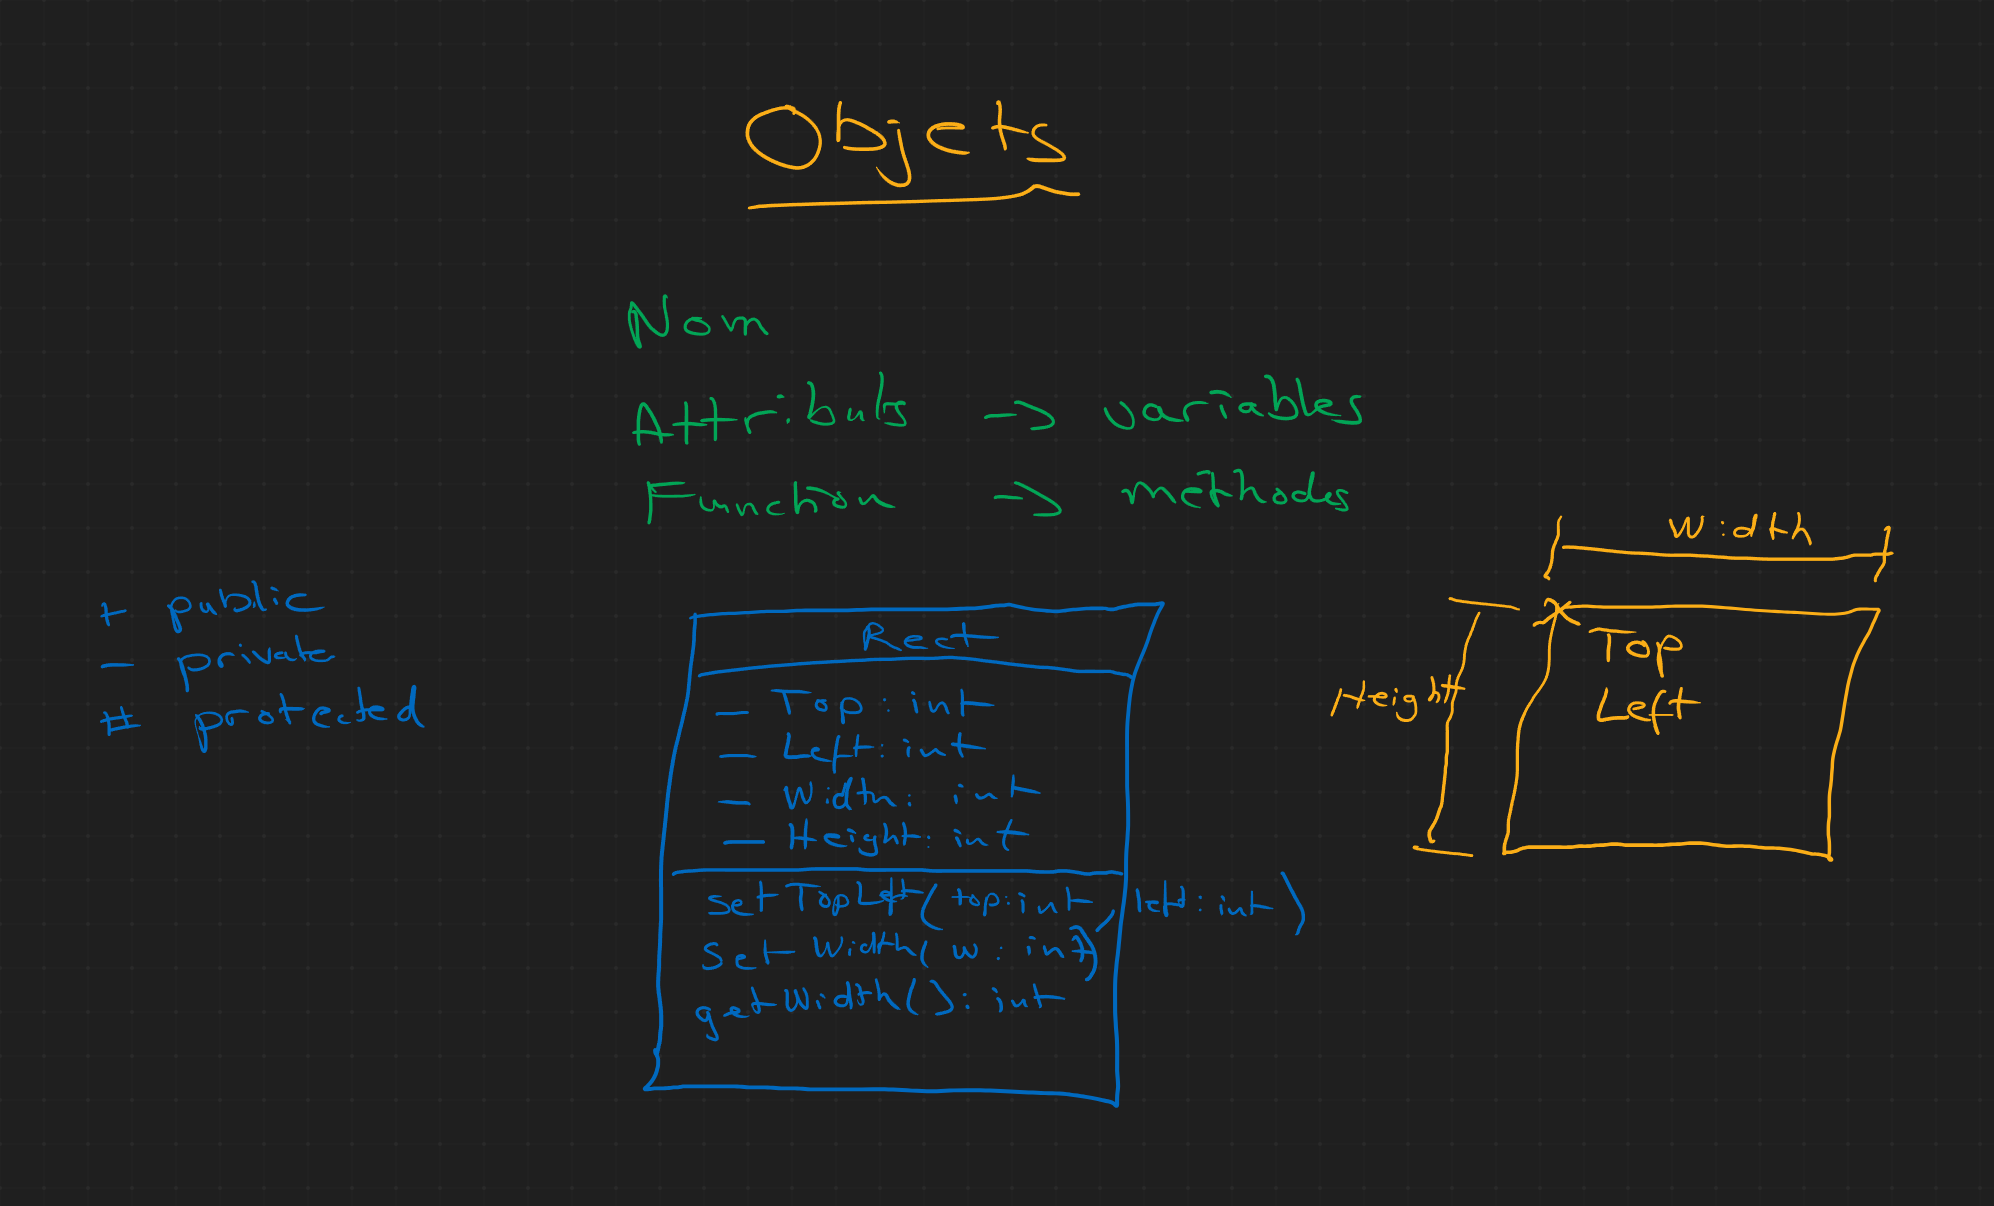 Objets
Nom
Attributs -> variables
Function -> methodes
+ public
- private
# protected
Rect
- Top : int
- Left : int
- Width : int
- Height : int
setTopLeft(top:int, left:int)
setWidth(w : int)
getWidth() : int
Width
Height
Top
Left